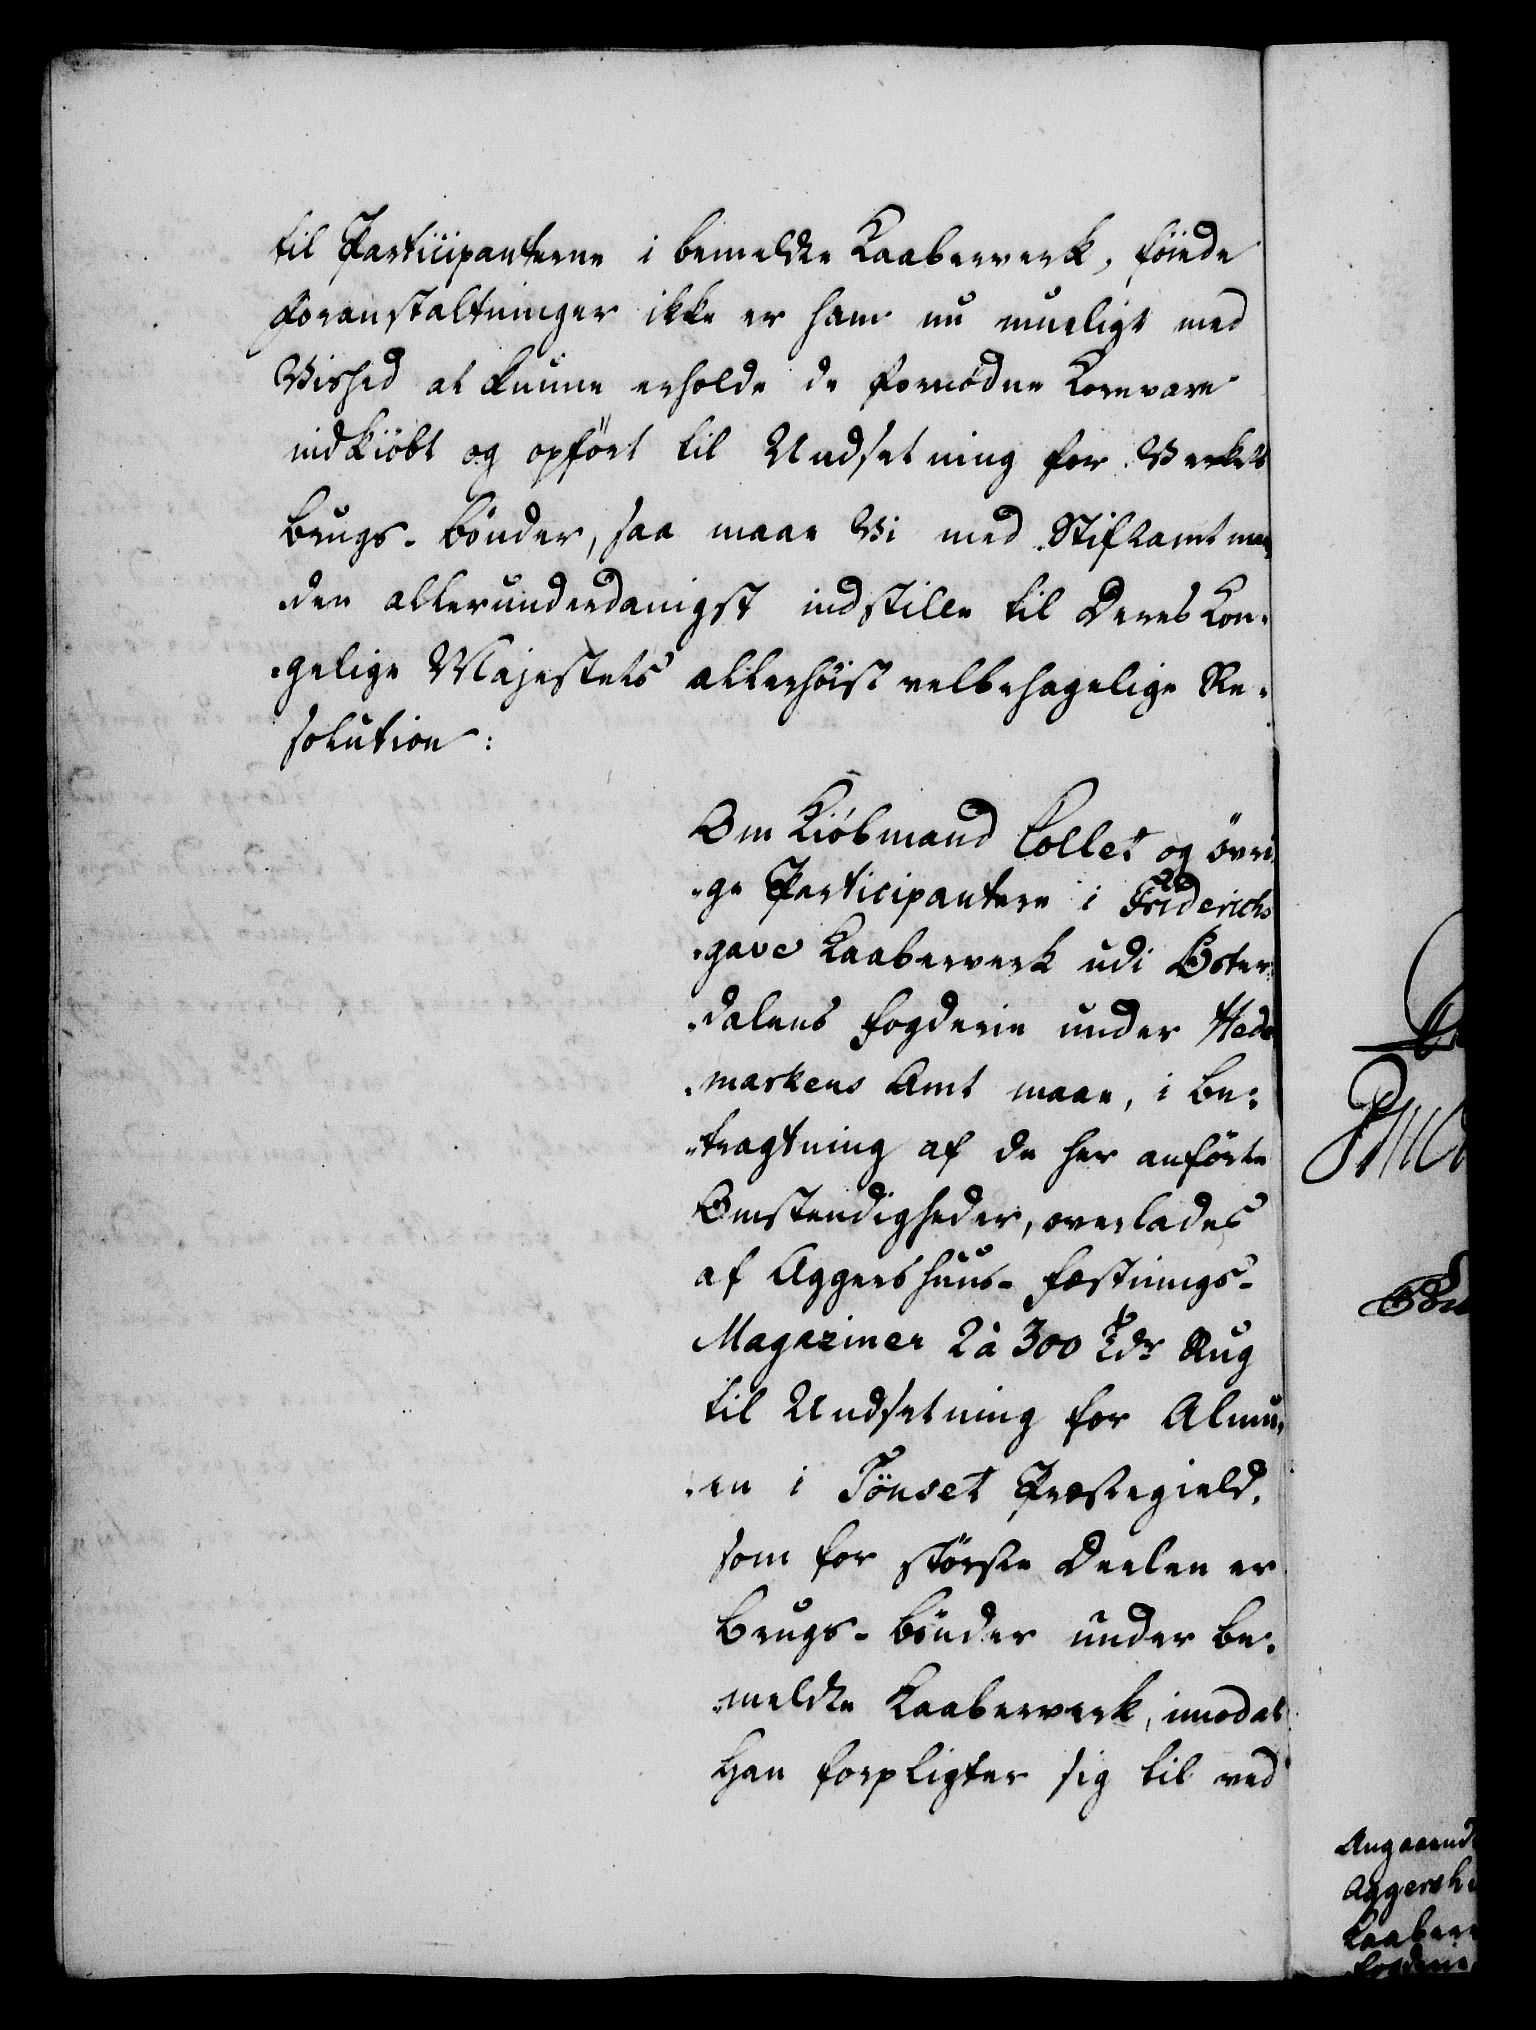 til Participanterne i bemeldte Kaaberverk, föiede
Foranstaltninger ikke er ham nu mueligt med
Vished at kunne erholde de fornödne Kornvare
indkiöbt og opfört til Undsetning for Verkets
Brugs-bönder, saa maae Vi med Stiftamtman
den allerunderdanigst indstille til Deres Kon-
gelige Majestets allerhöist velbehagelige Re-
solution:
Om Kiöbmand Collet og övri
ge Participantere i Friderichs
gave Kaaberverk udi Öster
dalens Fogderie under Hede
markens Amt maae, i Be-
tragtning af de her anförte
Omstendigheder, overlades
af Aggershuus-Fæstnings-
Magaziner 2 à 300 Tdr Rug
til Undsetning for Almu-
en i Tönset Præstegield,
som for störste Deelen er
Brugs-bönder under be-
meldte Kaaberverk, imod at
Han forpligter sig til ved
Angaaend
Aggersh
Kaaber
Fogderie